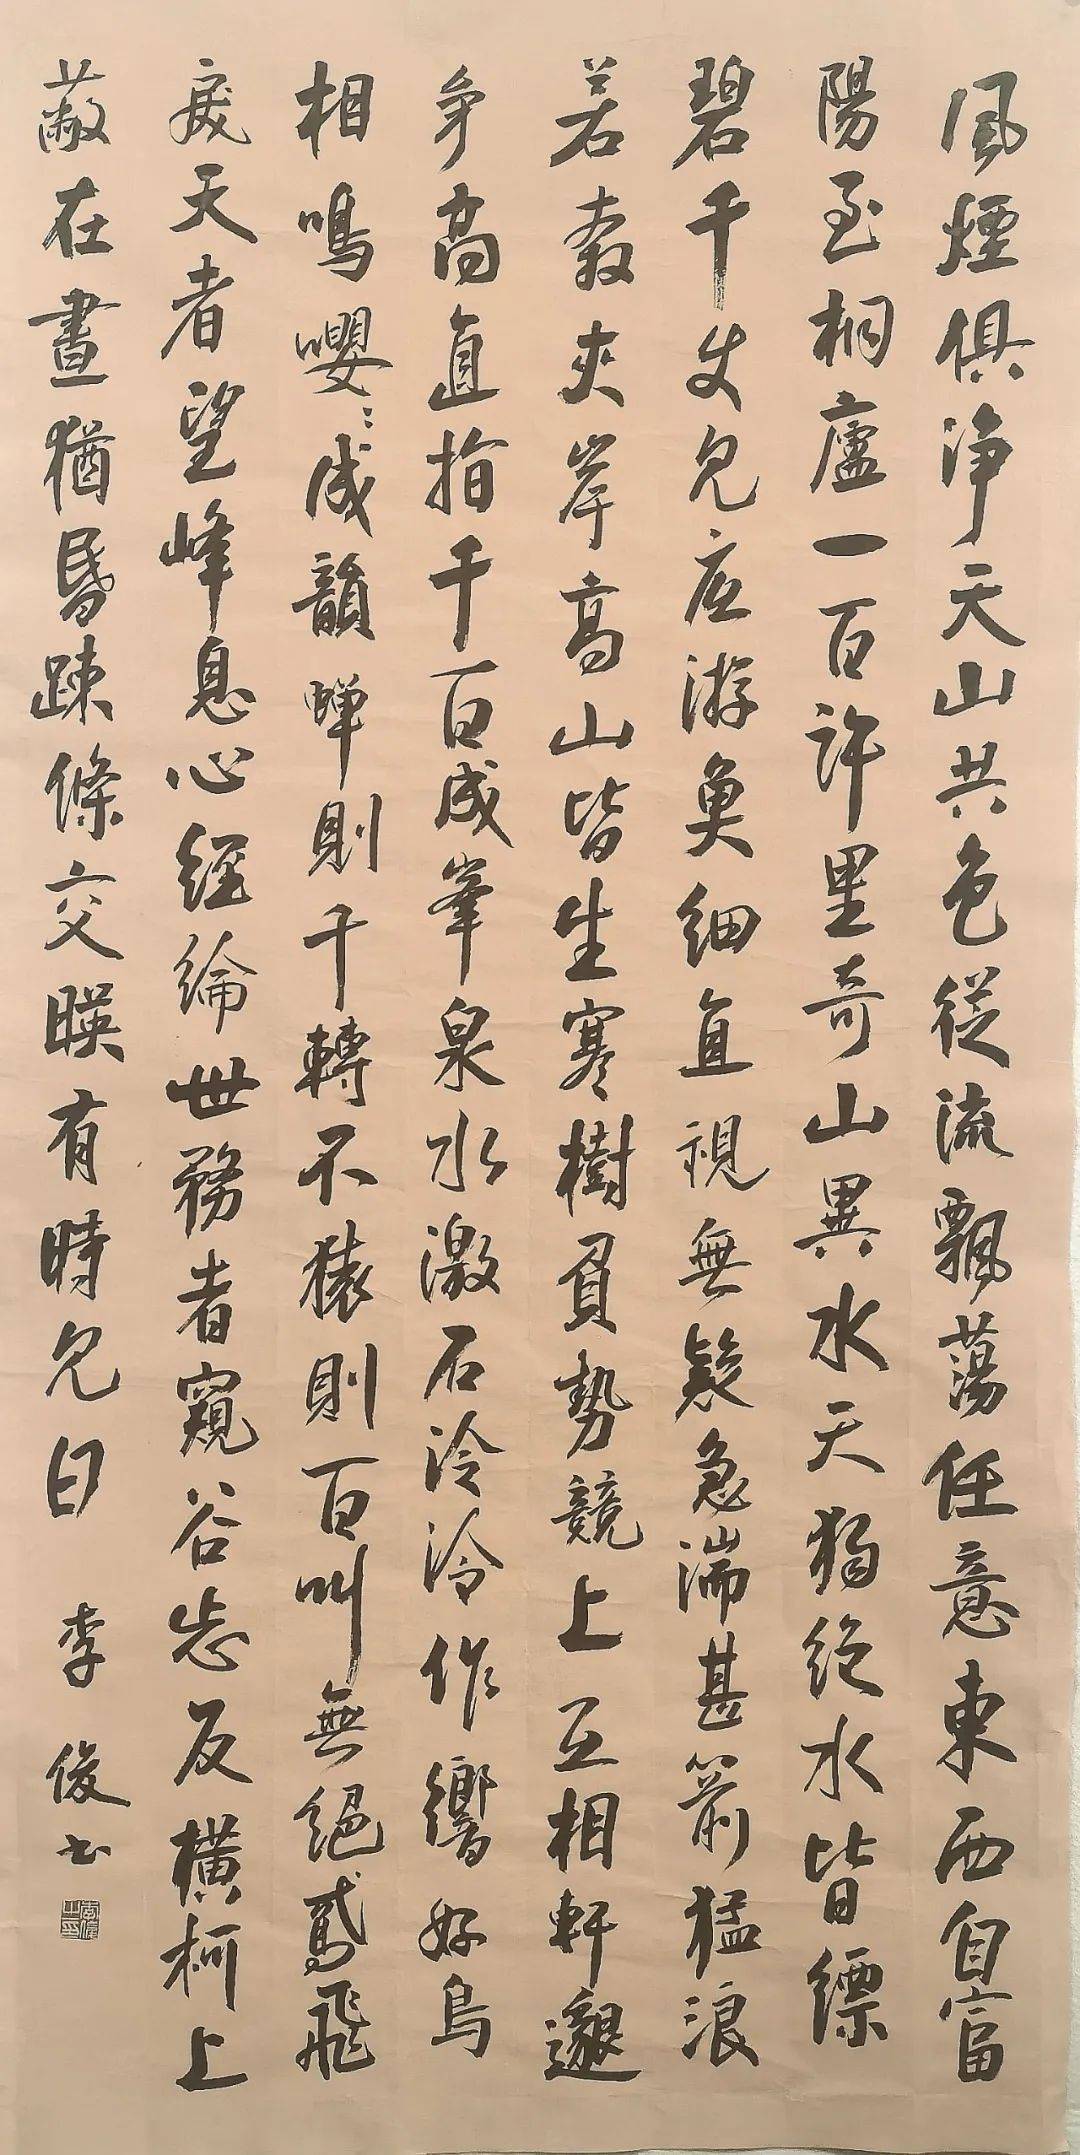 風煙俱淨天山共色從流飄蕩任意東西自富
陽至桐廬一百許里奇山異水天獨絕水皆縹
碧千丈見底游魚細直視無礙急湍甚箭猛浪
若奔夾岸高山皆生寒樹負勢競上互相軒邈
爭高直指千百成峯泉水激石泠泠作響好鳥
相鳴嚶々成韻蟬則千轉不猿則百叫無絕鳶飛
戾天者望峰息心經綸世務者窺谷忘反橫柯上
蔽在晝猶昏疎條交暎有時見日 李俊書